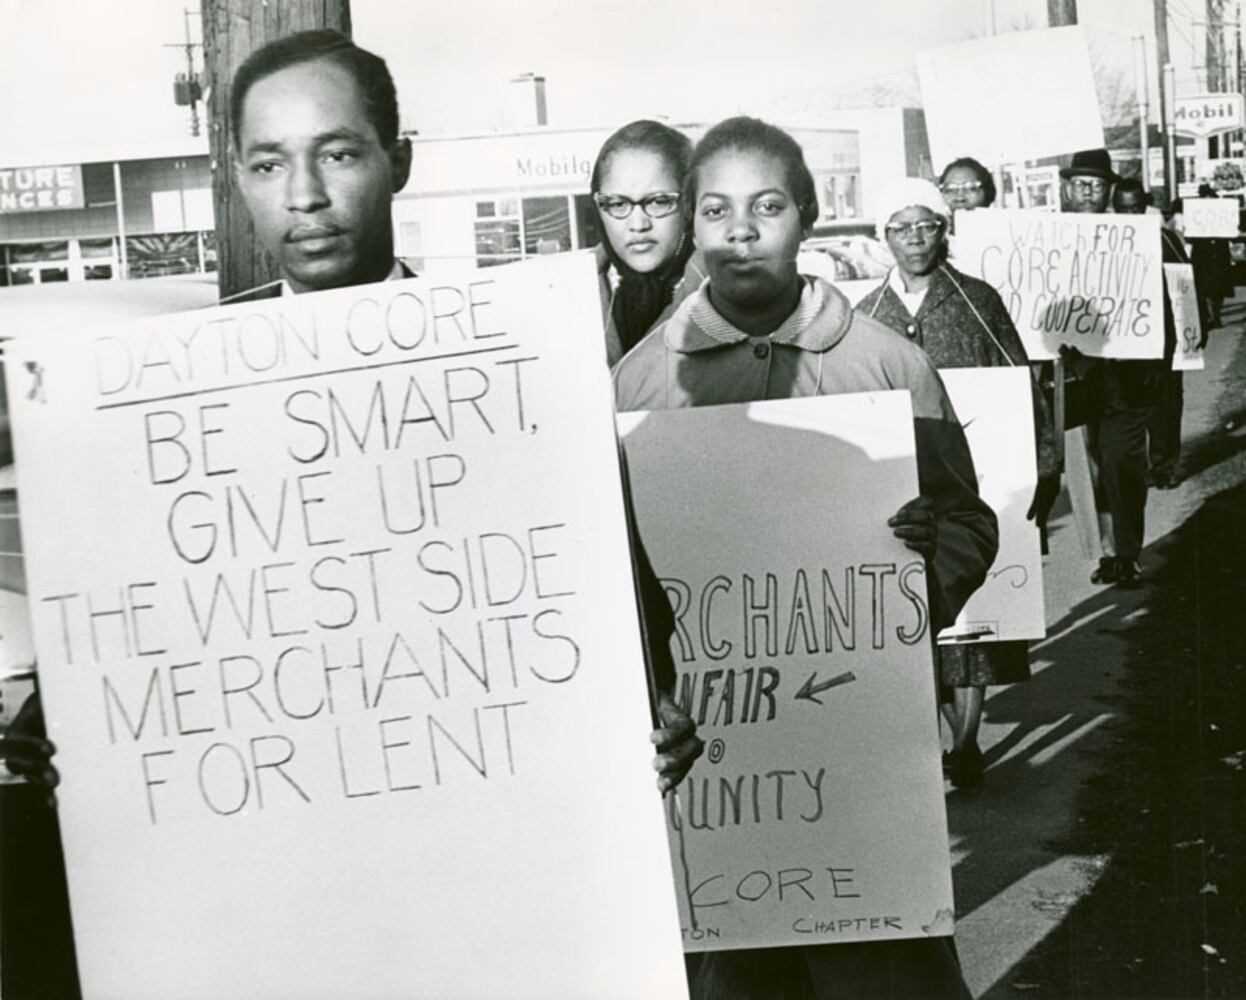 DAYTON CORE
BE SMART,
GIVE UP
THE WEST SIDE
MERCHANTS
FOR LENT
TURE
NCES
Mobilg
RCHANTS
NFAIR
O
UNITY
CORE
TON CHAPTER
WATCH FOR
CORE ACTIVITY
D COOPERATE
Mobil
CORE